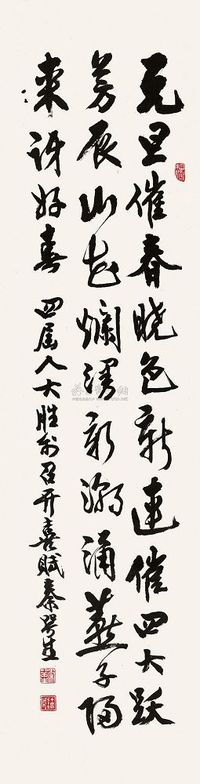 元旦催春晓色新連催四大跃
芳辰山花爛漫新潮涌燕子歸
来訝好春 四届人大胜利召开喜赋秦咢生